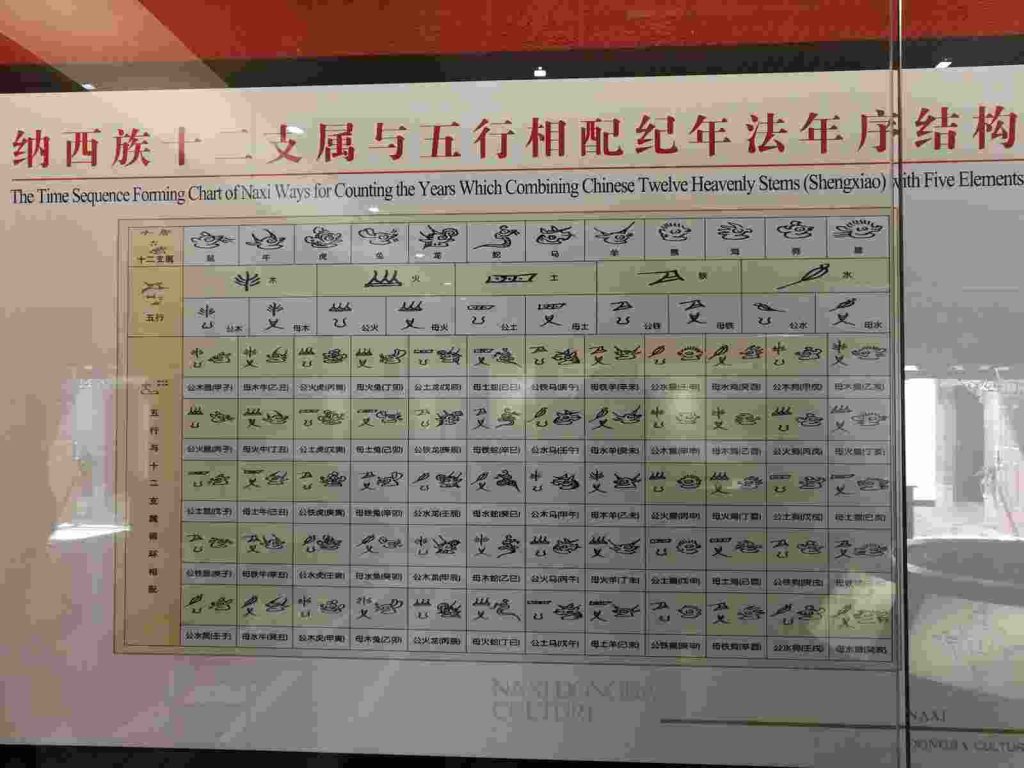 纳西族十二支属与五行相配纪年法年序结构
The Time Sequence Forming Chart of Naxi Ways for Counting the Years Which Combining Chinese Twelve Heavenly Stems (Shengxiao) with Five Elements
十二支属 鼠 牛 虎 兔 龙 蛇 马 羊 猴 鸡 狗 猪
木 火 土 铁 水
五行 公木 母木 公火 母火 公土 母土 公铁 母铁 公水 母水
五行与十二支属循环相配
公木鼠(甲子) 母木牛(乙丑) 公火虎(丙寅) 母火兔(丁卯) 公土龙(戊辰) 母土蛇(己巳) 公铁马(庚午) 母铁羊(辛未) 公水猴(壬申) 母水鸡(癸酉) 公木狗(甲戌) 母木猪(乙亥)
公火鼠(丙子) 母火牛(丁丑) 公土虎(戊寅) 母土兔(己卯) 公铁龙(庚辰) 母铁蛇(辛巳) 公水马(壬午) 母水羊(癸未) 公木猴(甲申) 母木鸡(乙酉) 公火狗(丙戌) 母火猪(丁亥)
公土鼠(戊子) 母土牛(己丑) 公铁虎(庚寅) 母铁兔(辛卯) 公水龙(壬辰) 母水蛇(癸巳) 公木马(甲午) 母木羊(乙未) 公火猴(丙申) 母火鸡(丁酉) 公土狗(戊戌) 母土猪(己亥)
公铁鼠(庚子) 母铁牛(辛丑) 公水虎(壬寅) 母水兔(癸卯) 公木龙(甲辰) 母木蛇(乙巳) 公火马(丙午) 母火羊(丁未) 公土猴(戊申) 母土鸡(己酉) 公铁狗(庚戌)
公水鼠(壬子) 母水牛(癸丑) 公木虎(甲寅) 母木兔(乙卯) 公火龙(丙辰) 母火蛇(丁巳) 公土马(戊午) 母土羊(己未) 公铁猴(庚申) 母铁鸡(辛酉) 公水狗(壬戌) 母水猪(癸亥)
NAXI DONGBA
CULTURE
NAXI
DONGBA CULTUR